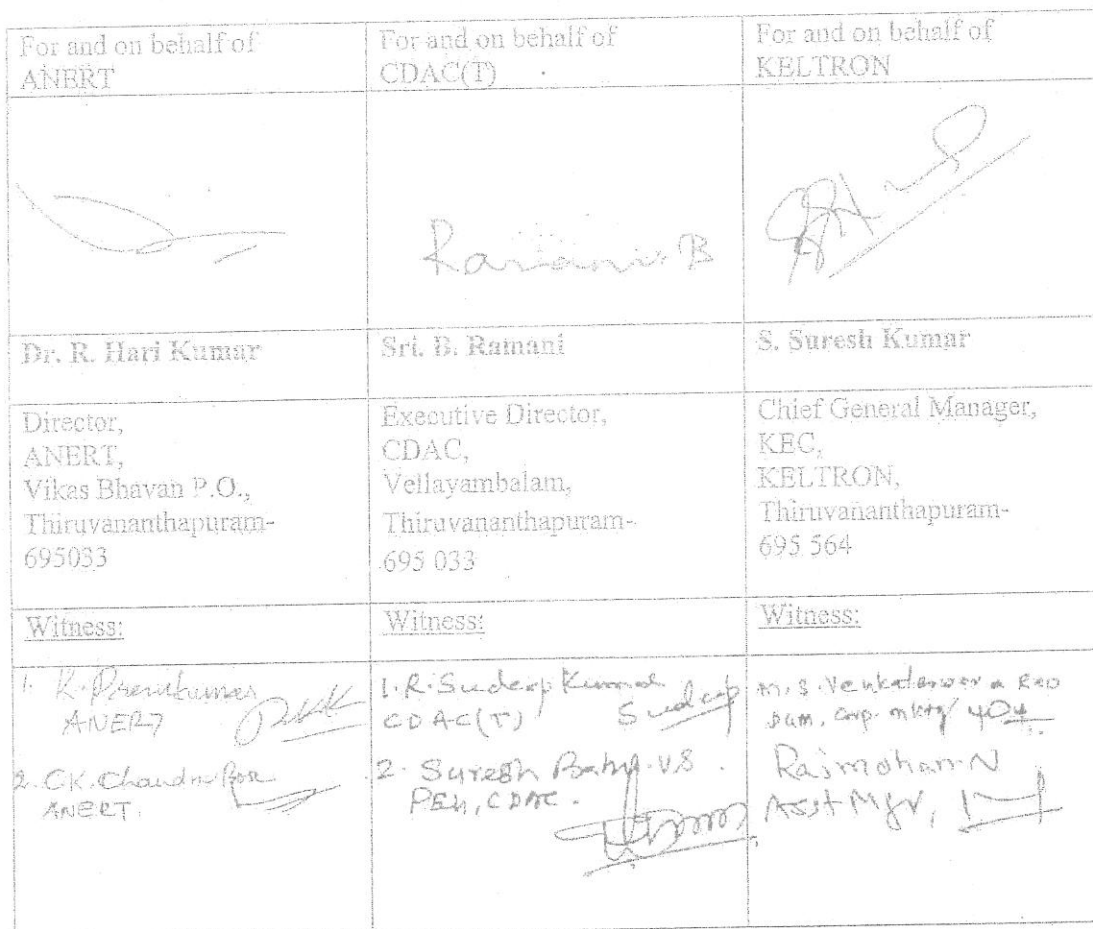 For and on behalf of
ANERT
For and on behalf of
CDAC(T)
For and on behalf of
KELTRON
Ramani. B
Dr. R. Hari Kumar
Sri. B. Ramani
S. Suresh Kumar
Director,
ANERT,
Vikas Bhavan P.O.,
Thiruvananthapuram-
695033
Executive Director,
CDAC,
Vellayambalam,
Thiruvananthapuram-
695 033
Chief General Manager,
KEC,
KELTRON,
Thiruvananthapuram-
695 564
Witness:
Witness:
Witness:
1. R. Premkumar
ANERT
2. C.K. Chandra Bose
ANERT.
1. R. Sudeep Kumar
CDAC(T)
Sudeep
2. Suresh Babu. V.S.
CDAC.
M. S. Venkateswara Rao
Rajmohan. N
Asst Mgr,